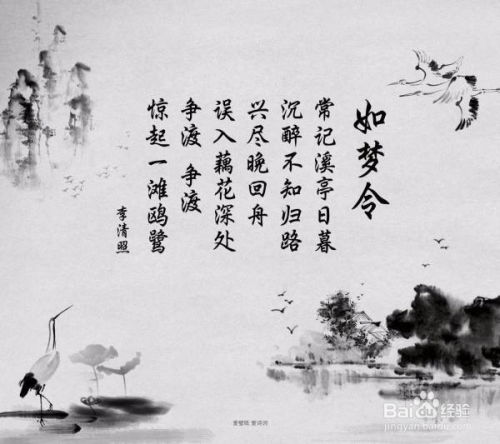 如梦令
常记溪亭日暮
沉醉不知归路
兴尽晚回舟
误入藕花深处
争渡 争渡
惊起一滩鸥鹭
李清照
爱壁纸 爱诗词
Baidu经验
jingyan.baidu.com